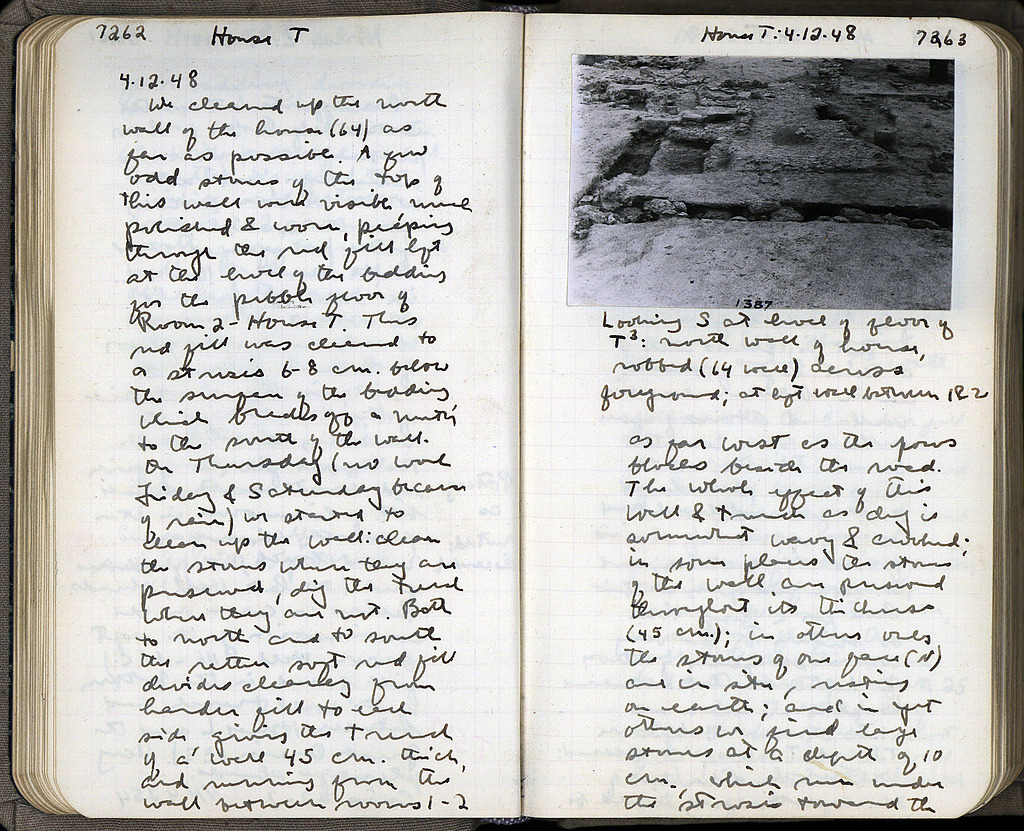 7262
House T
4.12.48
We cleaned up the north
wall of the house (64) as
far as possible. A few
odd stones of the top of
this wall were visible much
polished & worn, peeping
through the red fill left
at the level of the bedding
for the pebble floor of
Room 2 - House T. This
red fill was cleaned to
a strosis 6-8 cm. below
the surface of the bedding
which breaks off a
to the south of the wall.
On Thursday (no work
Friday & Saturday because
of rain) we started to
clean up the wall: clean
the stones where they are
preserved, dig the trench
where they are not. Both
to north and to south
the rather soft red fill
divides clearly from
harder fill to each
side giving the trench
of a wall 45 cm. thick,
and running from the
wall between rooms 1-2
House T: 4.12.48
7263
1387
Looking S at level of floor of
T³: north wall of house,
robbed (64 wall) across
foreground; at left wall between 1 & 2
as far west as the poros
blocks beside the road.
The whole effect of this
wall & trench as dug is
somewhat wavy & crooked;
in some places the stones
of the wall are preserved
throughout its thickness
(45 cm.); in others only
the stones of one face (N)
are in situ, resting
on earth; and in yet
others we find large
stones at a depth of 10
cm., which run under
the strosis toward the